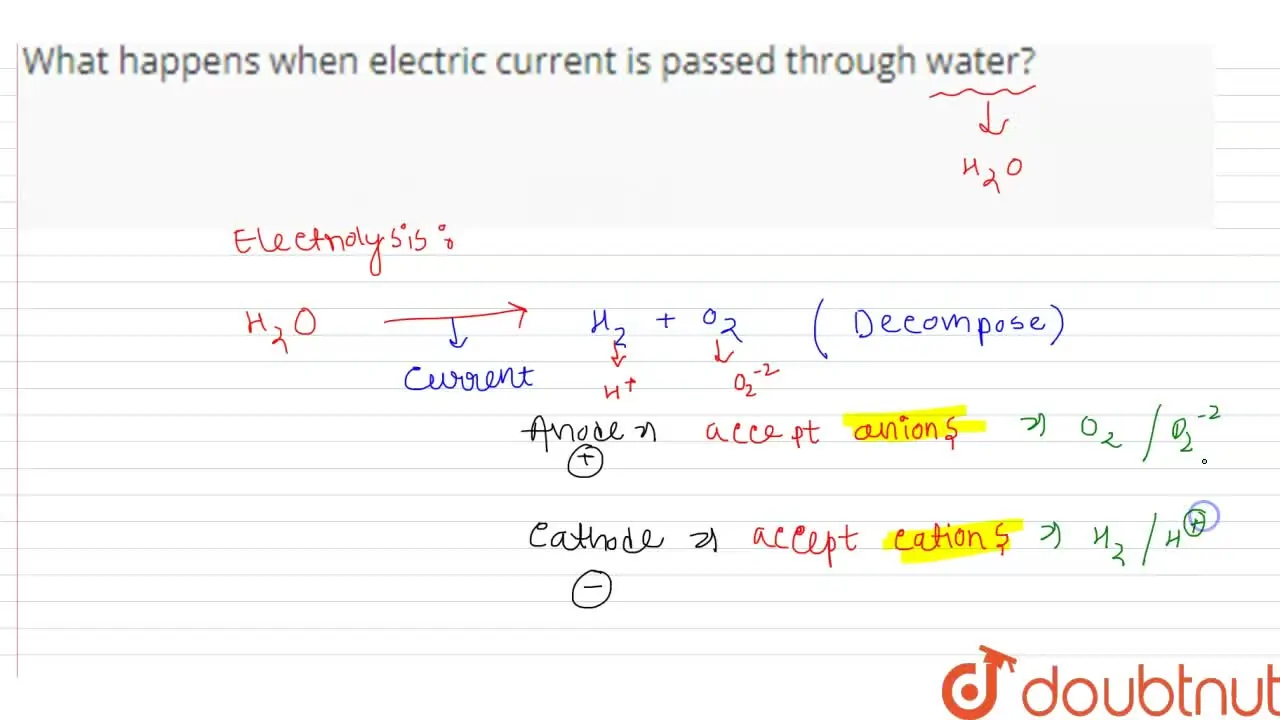 What happens when electric current is passed through water?
↓
H2O
Electrolysis:
H2O → H2 + O2 (Decompose)
↓ ↓ ↓
Current H+ O2-2
Anode ⇒ accept anions ⇒ O2 / O2-2
+
Cathode ⇒ accept cations ⇒ H2 / H+
−
doubtnut